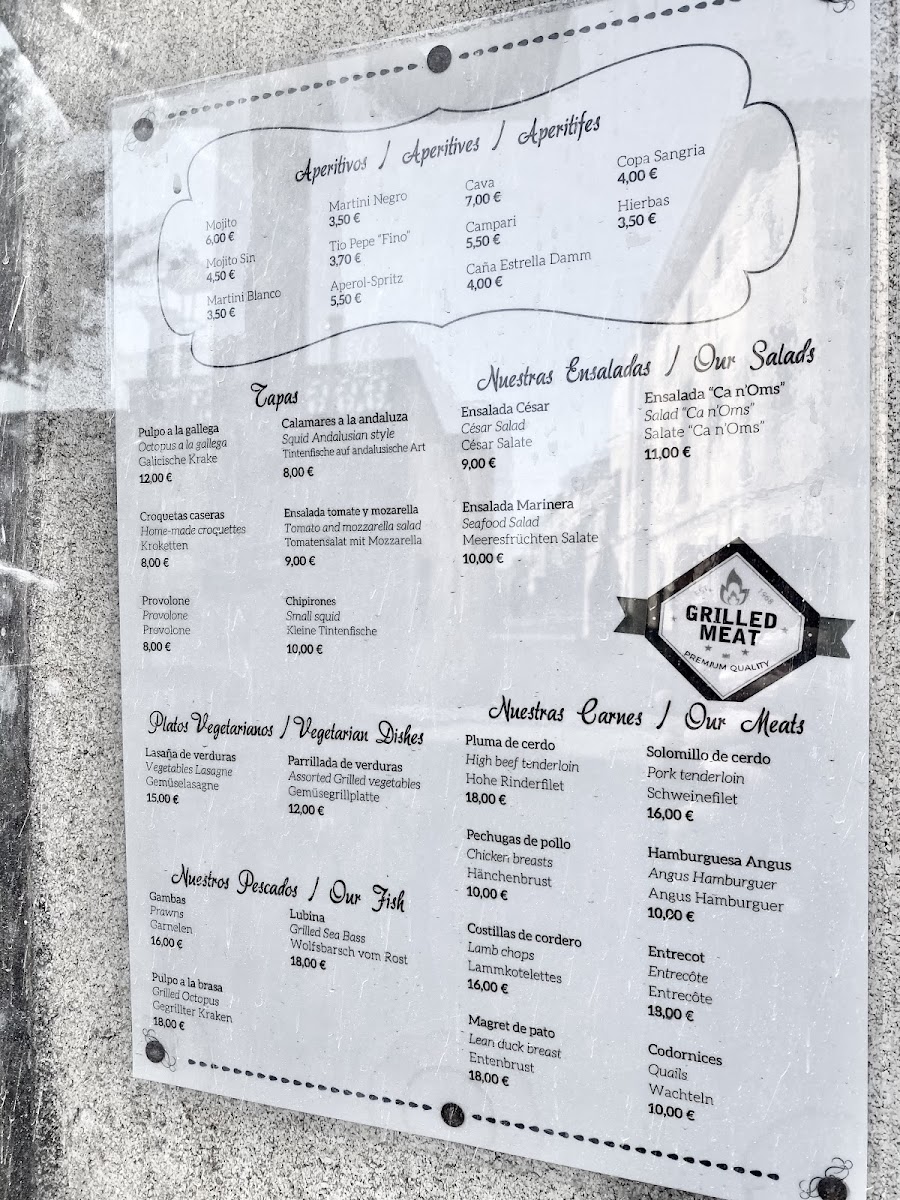 Aperitivos / Aperitives / Aperitifes
Mojito
6,00 €
Mojito Sin
4,50 €
Martini Blanco
3,50 €
Martini Negro
3,50 €
Tio Pepe "Fino"
3,70 €
Aperol-Spritz
5,50 €
Cava
7,00 €
Campari
5,50 €
Caña Estrella Damm
4,00 €
Copa Sangria
4,00 €
Hierbas
3,50 €
Tapas
Pulpo a la gallega
Octopus a la gallega
Galicische Krake
12,00 €
Croquetas caseras
Home-made croquettes
Kroketten
8,00 €
Provolone
Provolone
Provolone
8,00 €
Calamares a la andaluza
Squid Andalusian style
Tintenfische auf andalusische Art
8,00 €
Ensalada tomate y mozarella
Tomato and mozzarella salad
Tomatensalat mit Mozzarella
9,00 €
Chipirones
Small squid
Kleine Tintenfische
10,00 €
Nuestras Ensaladas / Our Salads
Ensalada César
César Salad
César Salate
9,00 €
Ensalada Marinera
Seafood Salad
Meeresfrüchten Salate
10,00 €
Ensalada "Ca n'Oms"
Salad "Ca n'Oms"
Salate "Ca n'Oms"
11,00 €
GRILLED
MEAT
PREMIUM QUALITY
Platos Vegetarianos / Vegetarian Dishes
Lasaña de verduras
Vegetables Lasagne
Gemüselasagne
15,00 €
Parrillada de verduras
Assorted Grilled vegetables
Gemüsegrillplatte
12,00 €
Nuestros Pescados / Our Fish
Gambas
Prawns
Garnelen
16,00 €
Pulpo a la brasa
Grilled Octopus
Gegrillter Kraken
18,00 €
Lubina
Grilled Sea Bass
Wolfsbarsch vom Rost
18,00 €
Nuestras Carnes / Our Meats
Pluma de cerdo
High beef tenderloin
Hohe Rinderfilet
18,00 €
Pechugas de pollo
Chicken breasts
Hänchenbrust
10,00 €
Costillas de cordero
Lamb chops
Lammkotelettes
16,00 €
Magret de pato
Lean duck breast
Entenbrust
18,00 €
Solomillo de cerdo
Pork tenderloin
Schweinefilet
16,00 €
Hamburguesa Angus
Angus Hamburguer
Angus Hamburguer
10,00 €
Entrecot
Entrecôte
Entrecôte
18,00 €
Codornices
Quails
Wachteln
10,00 €